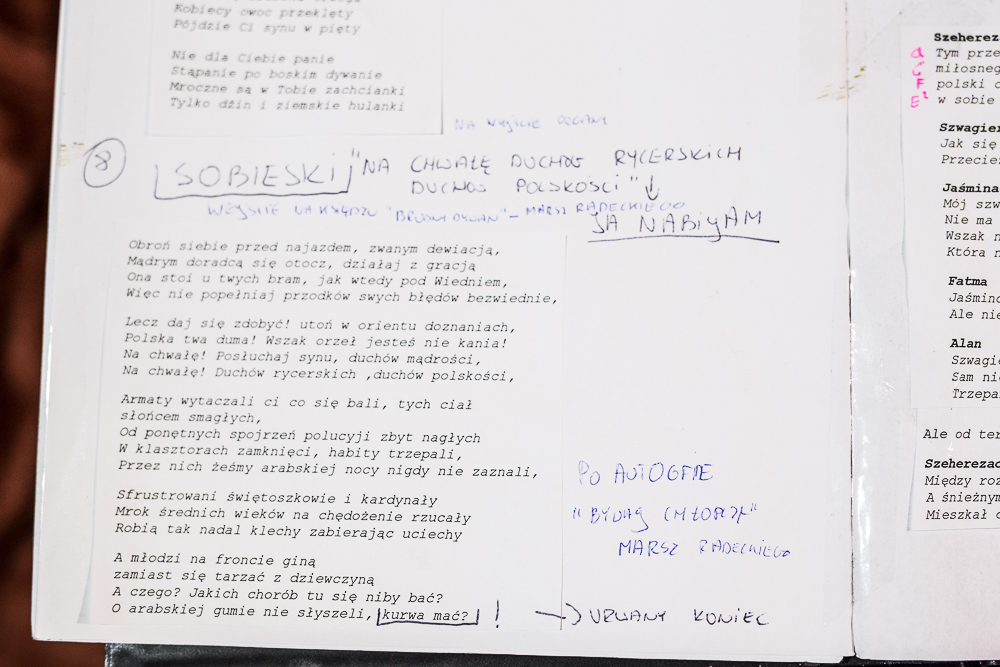 Kobiecy owoc przeklęty
Pójdzie Ci synu w pięty
Nie dla Ciebie panie
Stąpanie po boskim dywanie
Mroczne są w Tobie zachcianki
Tylko dżin i ziemskie hulanki
NA WEJŚCIE ORGANY
8
SOBIESKI "NA CHWAŁĘ DUCHÓW RYCERSKICH
DUCHÓW POLSKOŚCI"
WEJŚCIE NA KSIĘDZU "BRUDNY DYWAN" - MARSZ RADECKIEGO
JA NABIJAM
Obroń siebie przed najazdem, zwanym dewiacją,
Mądrym doradcą się otocz, działaj z gracją
Ona stoi u twych bram, jak wtedy pod Wiedniem,
Więc nie popełniaj przodków swych błędów bezwiednie,
Lecz daj się zdobyć! utoń w orientu doznaniach,
Polska twa duma! Wszak orzeł jesteś nie kania!
Na chwałę! Posłuchaj synu, duchów mądrości,
Na chwałę! Duchów rycerskich ,duchów polskości,
Armaty wytaczali ci co się bali, tych ciał
słońcem smagłych,
Od ponętnych spojrzeń polucyji zbyt nagłych
W klasztorach zamknięci, habity trzepali,
Przez nich żeśmy arabskiej nocy nigdy nie zaznali,
Sfrustrowani świętoszkowie i kardynały
Mrok średnich wieków na chędożenie rzucały
Robią tak nadal klechy zabierając uciechy
A młodzi na froncie giną
zamiast się tarzać z dziewczyną
A czego? Jakich chorób tu się niby bać?
O arabskiej gumie nie słyszeli, kurwa mać? !
→ URWANY KONIEC
PO AUTOGRAFIE
MARSZ RADECKIEGO
Szeherez
d Tym prze
C miłosneg
F polski
E² w sobie
Szwagie
Jak się
Przecie
Jaśmina
Mój szw
Nie ma
Wszak n
Która n
Fatma
Jaśmin
Ale nie
Alan
Szwagi
Sam ni
Trzepa
Ale od ter
Szeherezad
Między roz
A śnieżnym
Mieszkał